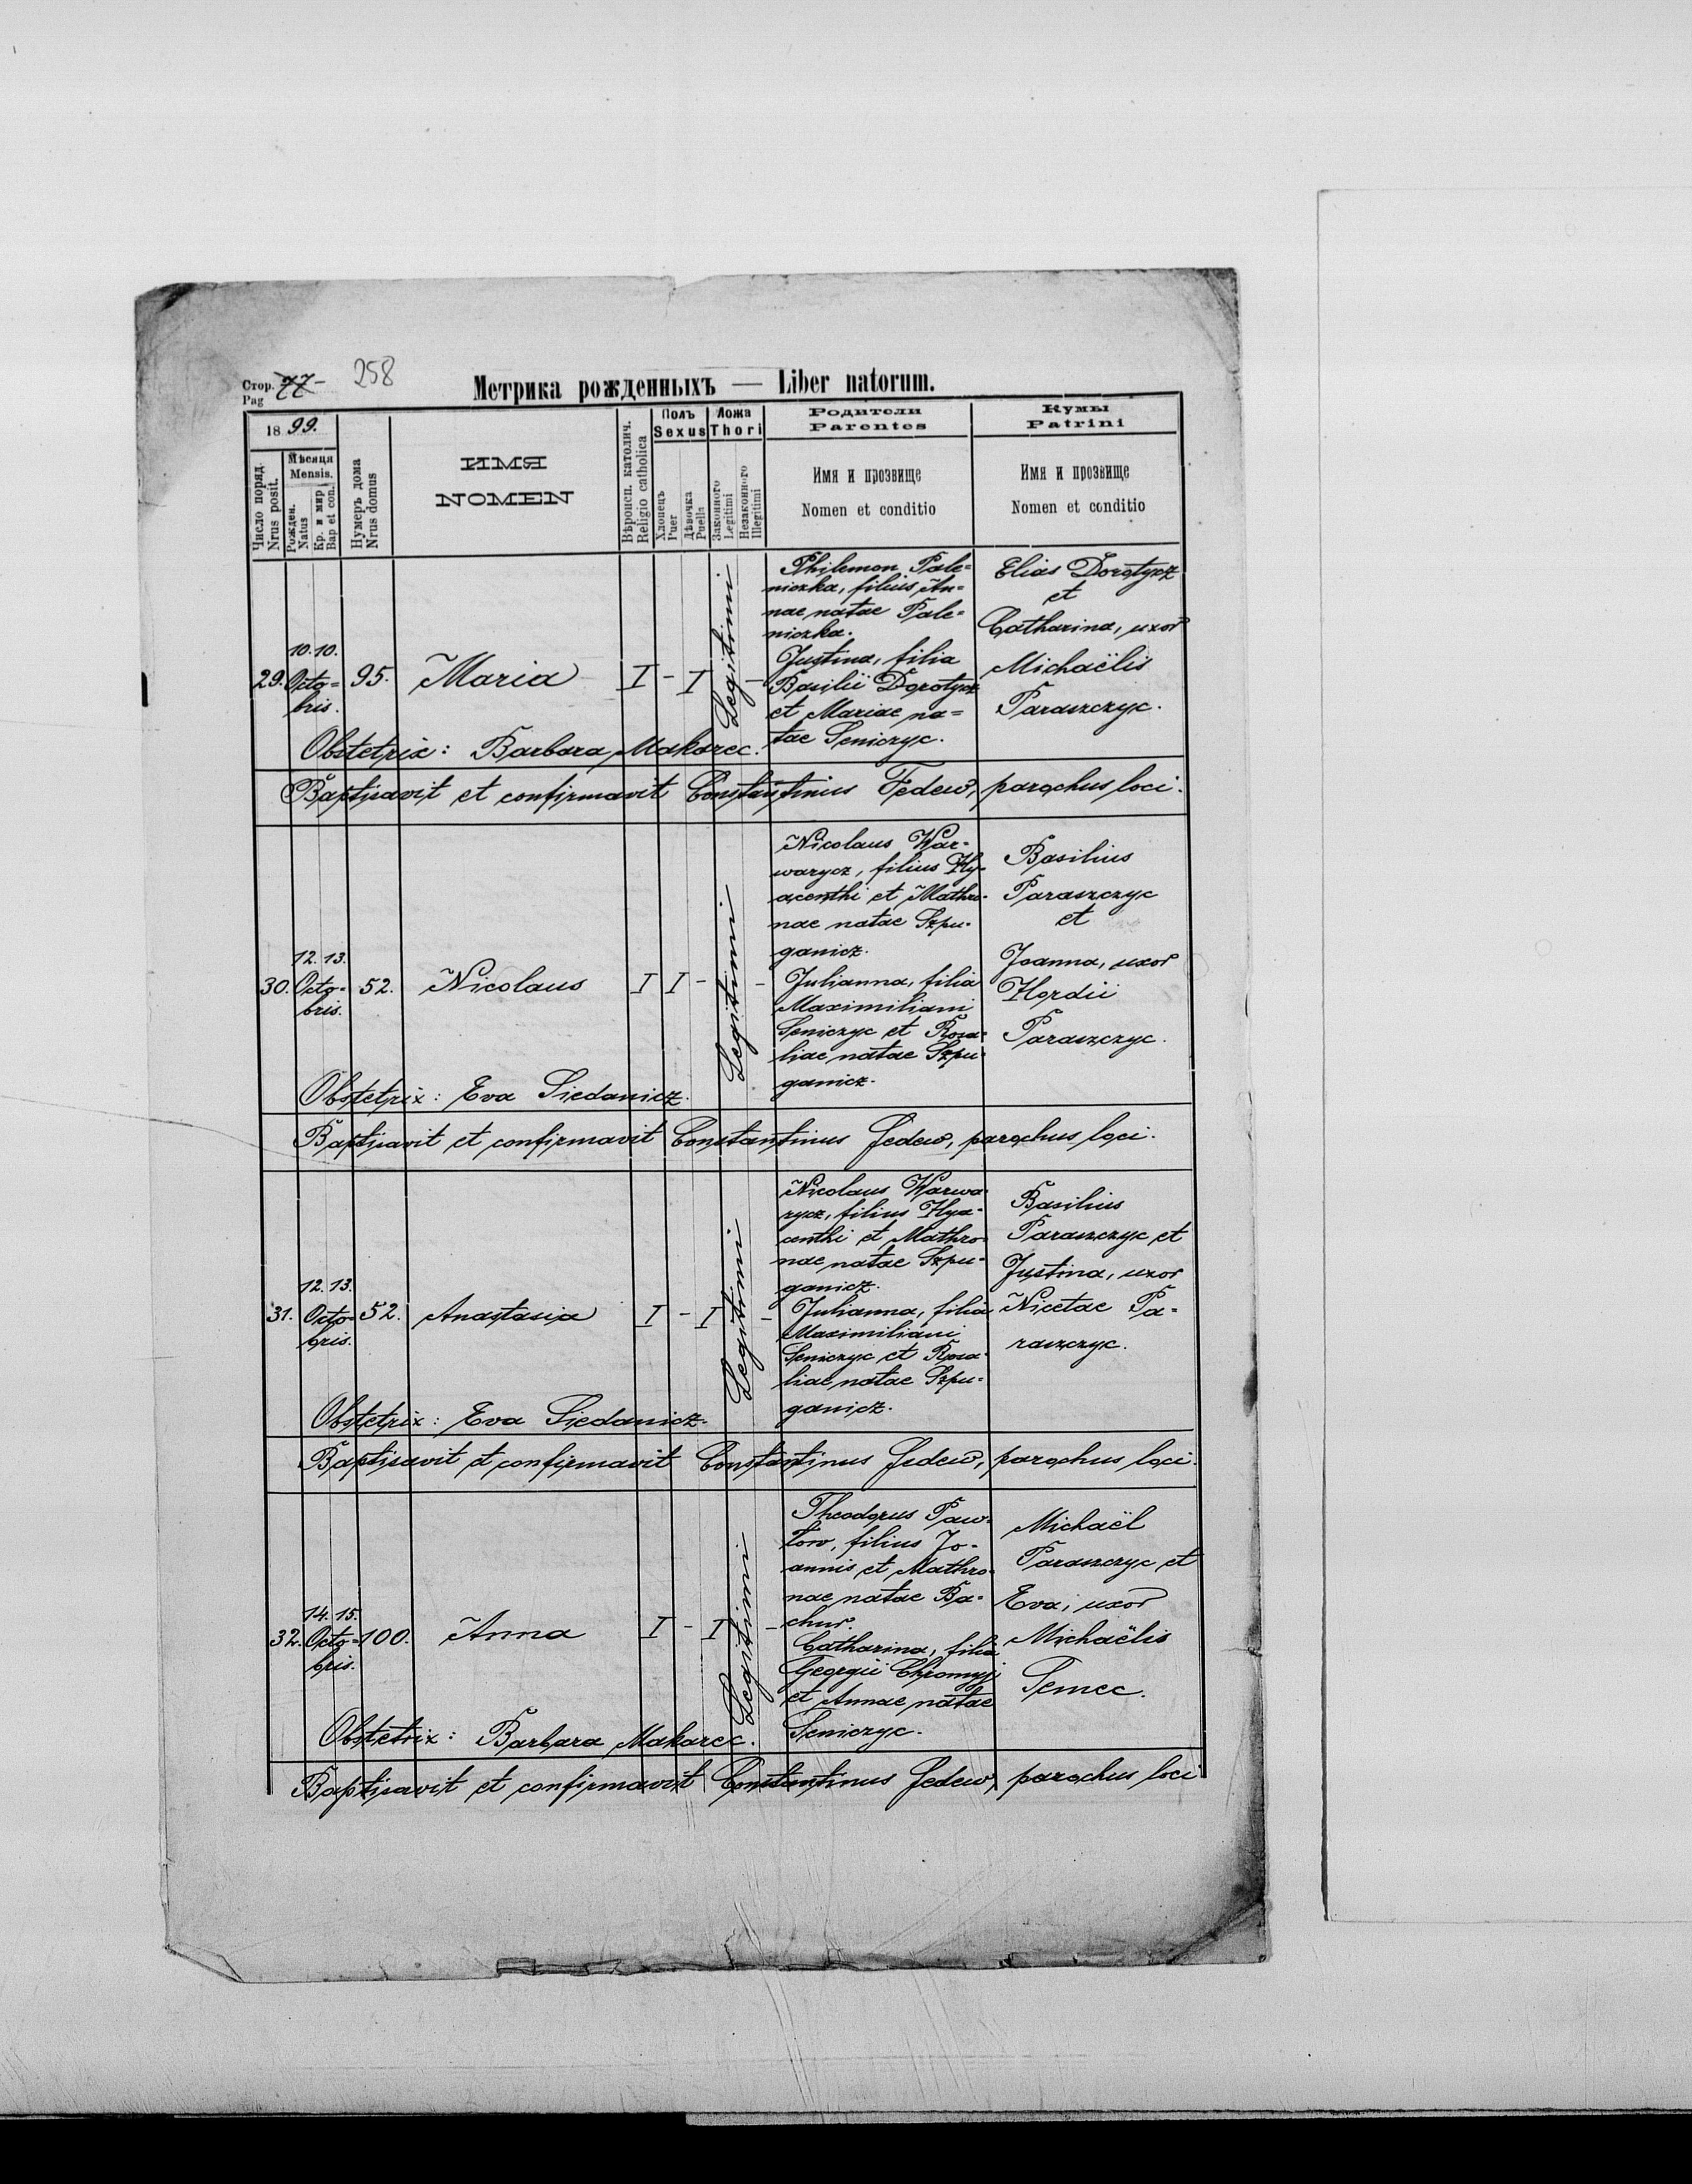 Стор. 77- 258
Pag
Метрика рожденныхъ — Liber natorum.
1899.
Число поряд.
Nrus posit.
Мѣсяця
Mensis.
Рожден.
Natus
Кр. и мир
Bap et con.
Нумеръ дома
Nrus domus
ИМЯ
NOMEN
Вѣроисп. католич.
Religio catholica
Полъ
Sexus
Хлопецъ
Puer
Дѣвочка
Puella
Ложа
Thori
Законного
Legitimi
Незаконного
Illegitimi
Родители
Parentes
Имя и прозвище
Nomen et conditio
Кумы
Patrini
Имя и прозвище
Nomen et conditio
29.
10. 10.
Octo=
bris.
95.
Maria
I - I
Legitimi
-
Philemon Pale=
niczka, filius An=
nae natae Pale=
niczka.
Justina, filia
Basilii Dorotycz
et Mariae na=
tae Seniczyc.
Elias Dorotycz
et
Catharina, uxor
Michaëlis
Paraszczyc.
Obstetrix: Barbara Makarec.
Baptisavit et confirmavit Constantinus Fedew, parochus loci.
30.
12. 13.
Octo=
bris.
52.
Nicolaus
I I -
Legitimi
-
Nicolaus War=
warycz, filius Hy=
acenthi et Mathro=
nae natae Szpu=
ganicz.
Julianna, filia
Maximiliani
Seniczyc et Rosa=
liae natae Szpu=
ganicz.
Basilius
Paraszczyc
et
Joanna, uxor
Hordii
Paraszczyc.
Obstetrix: Eva Siedanicz.
Baptisavit et confirmavit Constantinus Fedew, parochus loci.
31.
12. 13.
Octo=
bris.
52.
Anastasia
I - I
Legitimi
-
Nicolaus Warwa=
rycz, filius Hya=
centhi et Mathro=
nae natae Szpu=
ganicz.
Julianna, filia
Maximiliani
Seniczyc et Rosa=
liae natae Szpu=
ganicz.
Basilius
Paraszczyc et
Justina, uxor
Nicetae Pa=
raszczyc.
Obstetrix: Eva Siedanicz.
Baptisavit et confirmavit Constantinus Fedew, parochus loci.
32.
14. 15.
Octo=
bris.
100.
Anna
I - I
Legitimi
-
Theodorus Paw=
łow, filius Jo=
annis et Mathro=
nae natae Ba=
chur.
Catharina, filia
Georgii Chromyj
et Annae natae
Seniczyc.
Michaël
Paraszczyc et
Eva, uxor
Michaëlis
Semec.
Obstetrix: Barbara Makarec.
Baptisavit et confirmavit Constantinus Fedew, parochus loci